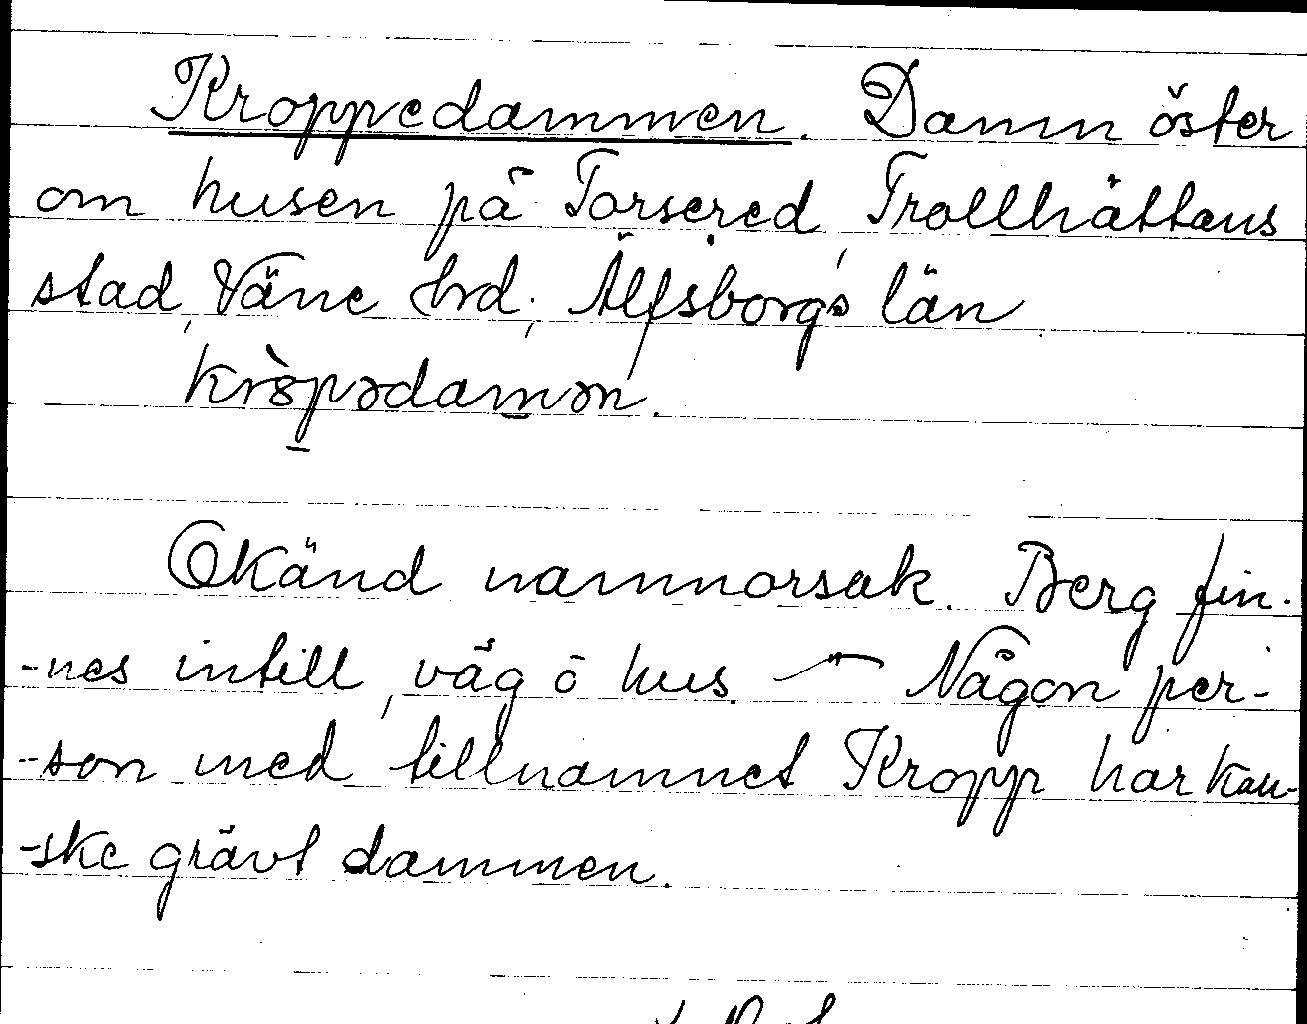 Kroppedammen. Damm öster
om husen på Torsered, Trollhättans
stad, Väne hrd, Älfsborgs län
kròpədamən.
Okänd namnorsak. Berg fin-
-nes intill, väg ö hus. — Någon per-
-son med tillnamnet Kropp har kan-
-ske grävt dammen.